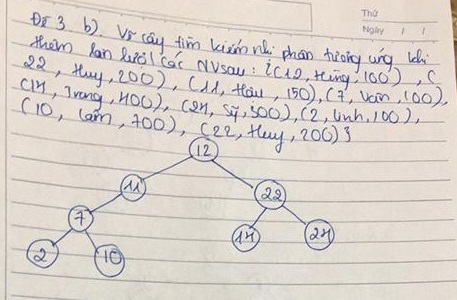 Thứ
Ngày / /
Đề 3 b). Vẽ cây tìm kiếm nhị phân tương ứng khi
thêm lần lượt các NV sau: {(12, Hưng, 100), (
22, Huy, 200), (11, Hậu, 150), (7, Vân, 100),
(14, Trang, 400), (24, Sỹ, 300), (2, Linh, 100),
(10, Lâm, 700), (22, Huy, 200)}
12
11 22
7 14 24
2 10